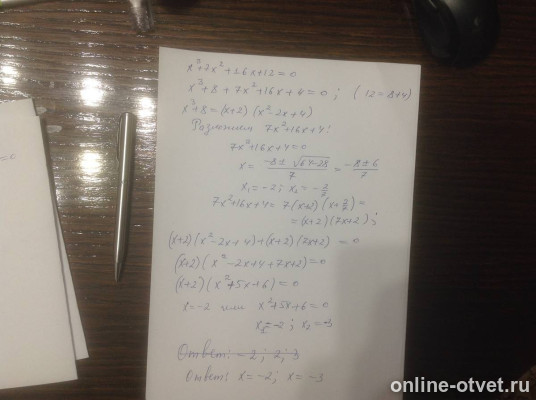 x³+7x²+16x+12=0
x³+8+7x²+16x+4=0; (12=8+4)
x³+8=(x+2)(x²-2x+4)
Разложим 7x²+16x+4:
7x²+16x+4=0
x=(-8±√(64-28))/7=(-8±6)/7
x₁=-2; x₂=-2/7
7x²+16x+4=7(x+2)(x+2/7)=
=(x+2)(7x+2);
(x+2)(x²-2x+4)+(x+2)(7x+2)=0
(x+2)(x²-2x+4+7x+2)=0
(x+2)(x²+5x+6)=0
x=-2 или x²+5x+6=0
x₁=-2; x₂=-3
Ответ: -2; 2; 3
Ответ: x=-2; x=-3
=0
online-otvet.ru